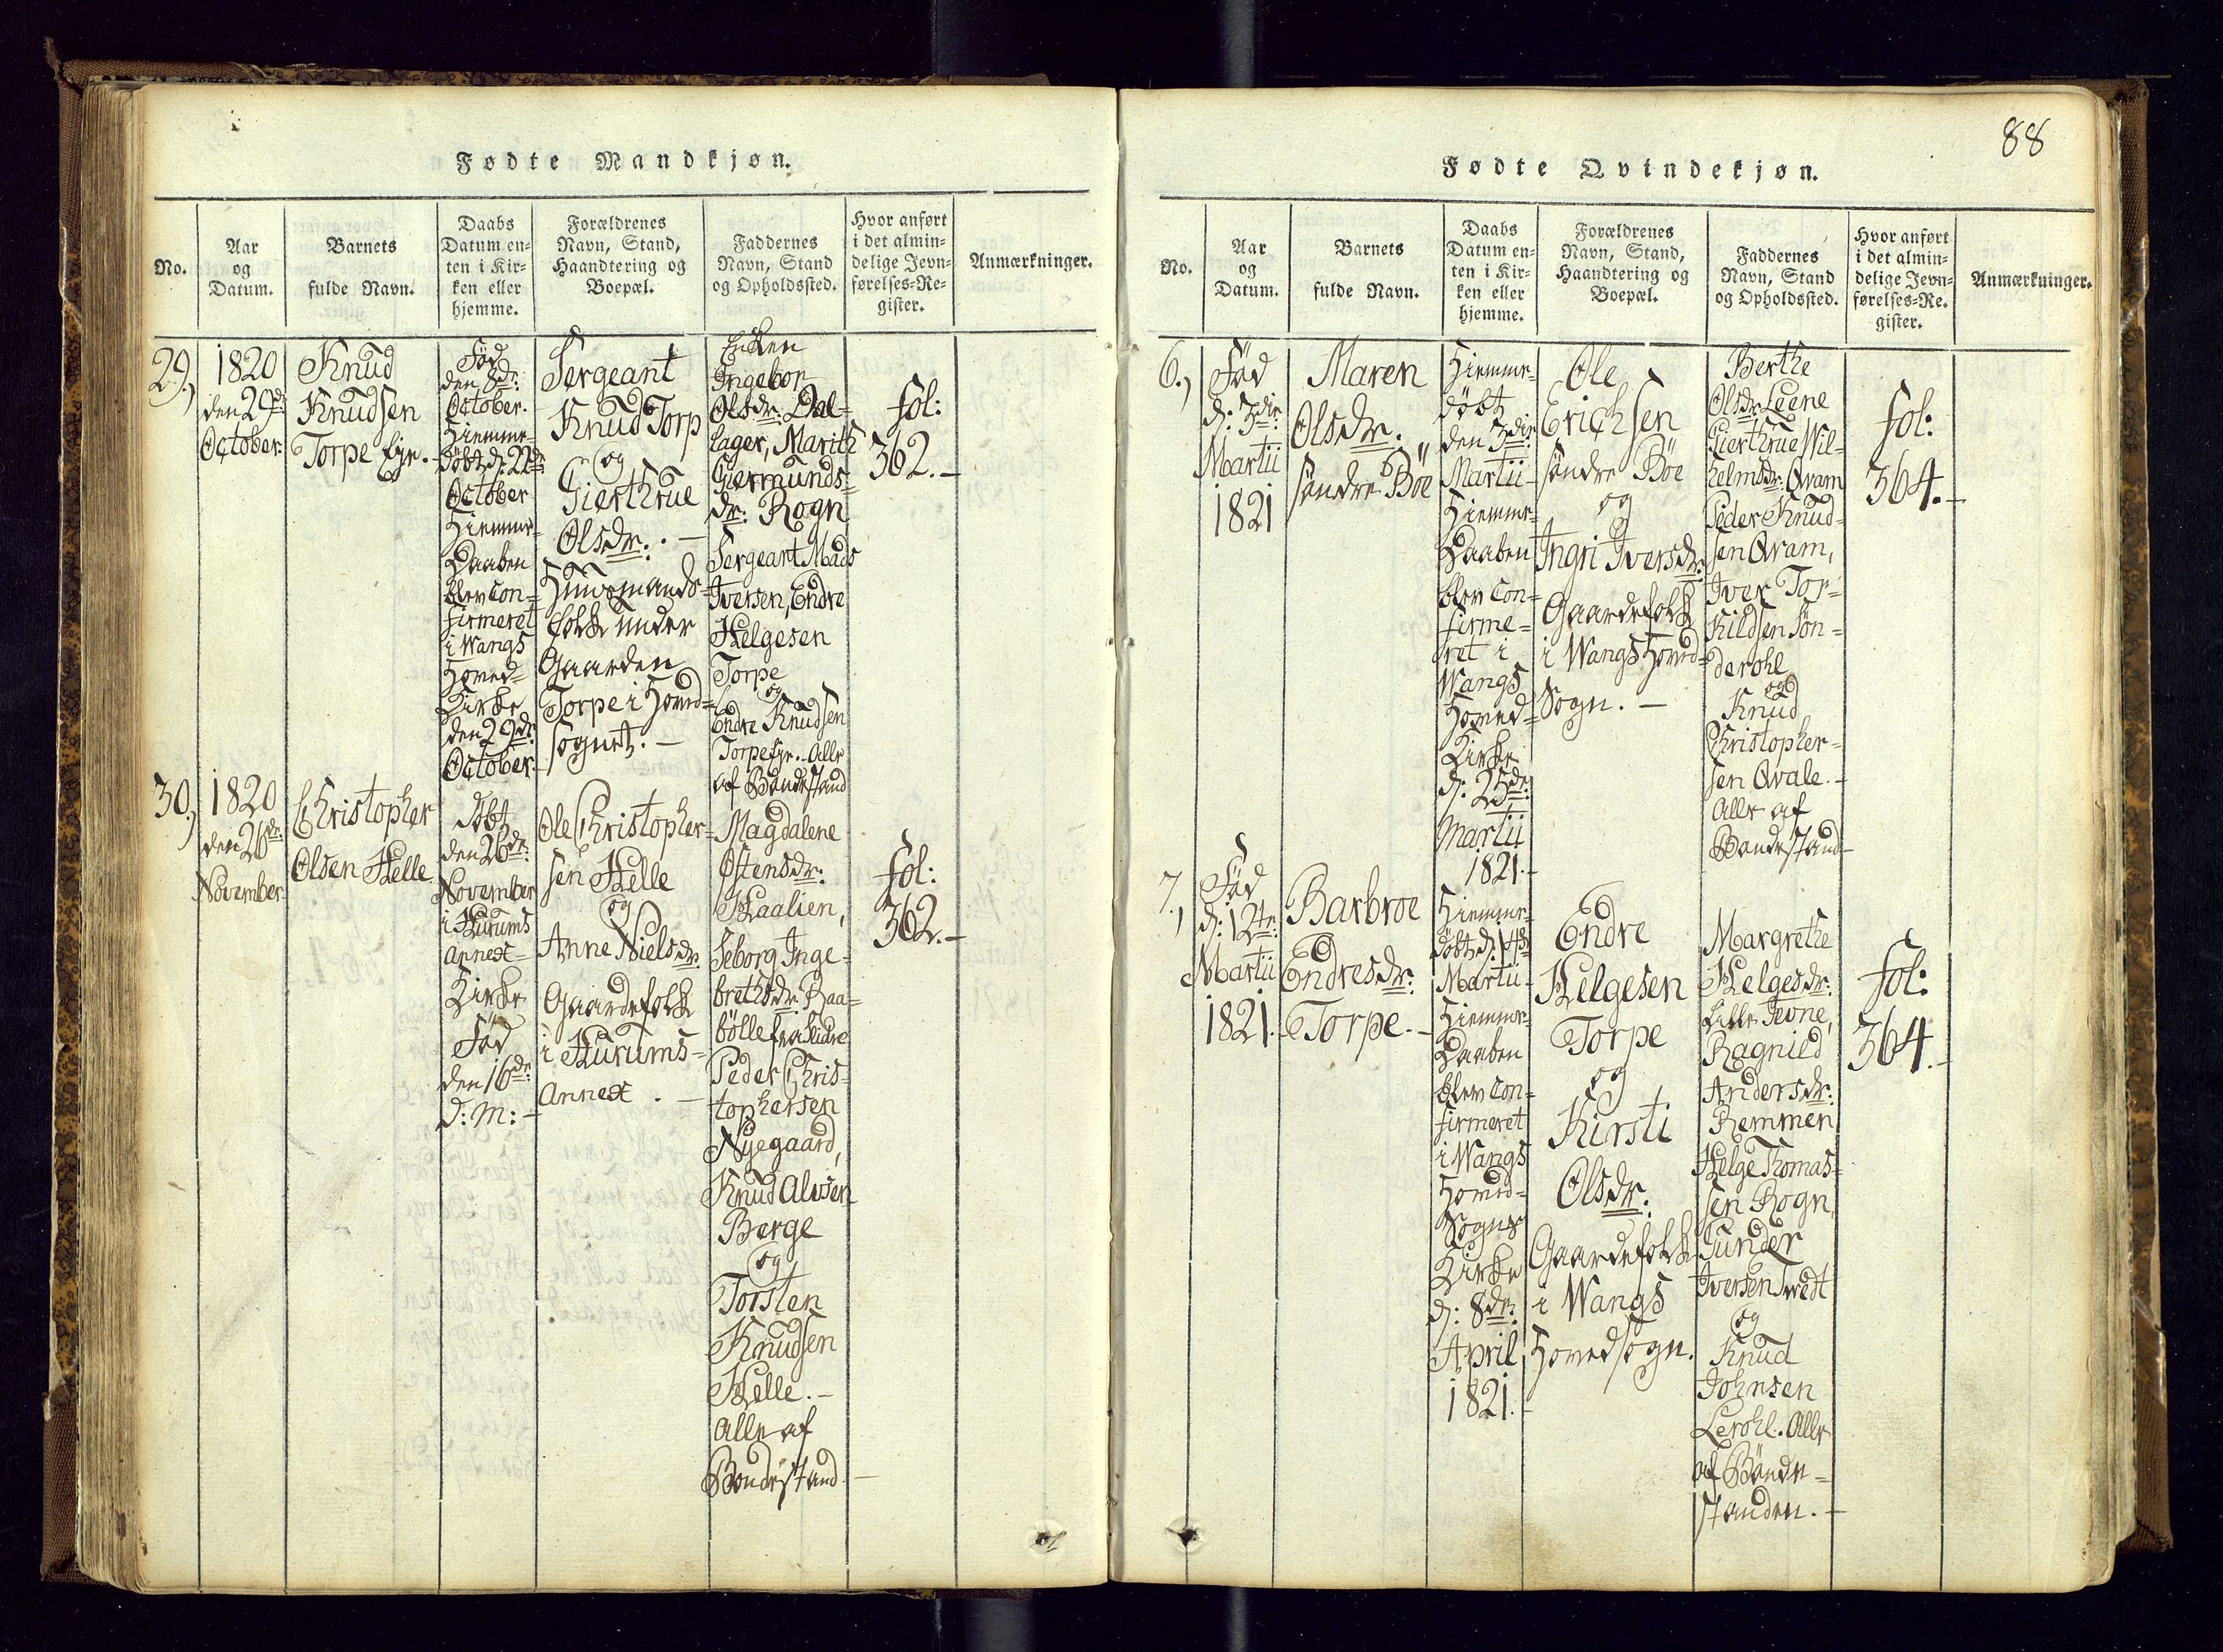 Fødte Mandkjøn.
No.
Aar
og
Datum.
Barnets
fulde Navn.
Daabs
Datum en-
ten i Kir-
ken eller
hjemme.
Forældrenes
Navn, Stand,
Haandtering og
Boepæl.
Faddernes
Navn, Stand
og Opholdssted.
Hvor anført
i det almin-
delige Jevn-
førelses-Re-
gister.
Anmærkninger.
29.,
1820
den 29de
October.
Knud
Knudsen
Torpe Eje.
Fød
den 8de:
October.
Hiemme-
døbt d: 22de
October
Hiemme-
Daaben
blev Con-
firmeret
i Wangs
Hoved-
Kirke
den 29de
October.
Sergeant
Knud Torp
og
Gierthrue
Olsdr: . -
Huusmands-
folk under
Gaarden
Torpe i Hoved-
sognet. -
Enken
Ingebor
Olsdr: Dal-
lager, Marith
Giermunds-
dr: Rogn
Sergeant Mads
Iversen, Endre
Helgesen
Torpe
og
Endre Knudsen
Torpe Eje. Alle
af Bondestand
fol:
362. -
30.,
1820
den 26de
November.
Christopher
Olsen Helle
Døbt
den 26de:
November
i Hurums
Annex-
Kirke
Fød
den 16de:
d: M: -
Ole Christopher-
sen Helle
og
Anne Nielsdr:
Gaardefolk
i Hurums-
Annex . -
Magdalene
Østensdr:
Haalien,
Seborg Inge-
brethsdr: Raa-
bølle fra Slidre
Peder Chris-
tophersen
Nyegaard,
Knud Alvsen
Berge
og
Torsten
Knudsen
Helle. -
Alle af
Bondestand. -
fol:
362. -
88
Fødte Qvindekjøn.
No.
Aar
og
Datum.
Barnets
fulde Navn.
Daabs
Datum en-
ten i Kir-
ken eller
hjemme.
Forældrenes
Navn, Stand,
Haandtering og
Boepæl.
Faddernes
Navn, Stand
og Opholdssted.
Hvor anført
i det almin-
delige Jevn-
førelses-Re-
gister.
Anmærkninger.
6.,
Fød
d: 3die
Martii
1821
Maren
Olsdr.
søndre Böe
Hiemme-
døbt
den 3die
Martii-
Hiemme-
Daaben
blev Con-
firme-
ret i
Wangs
Hoved-
Kirke
d: 25de:
Martii
1821. -
Ole
Erichsen
søndre Böe
og
Ingri Iversdr:
Gaardefolk
i Wangs Hoved-
Sogn. -
Berthe
Olsdr: Leene
Gierthrue Wil-
helmsdr: Qvam
Peder Knud-
sen Qvam,
Iver Tor-
kildsen Søn-
derohl
og
Knud
Christopher-
sen Qvale. -
Alle af
Bondestand -
fol:
364. -
7.,
Fød
d: 12te:
Martii
1821.
Barbroe
Endresdr:
Torpe. -
Hiemme-
døbt d: 14de
Martii-
Hiemme-
Daaben
blev Con-
firmeret
i Wangs
Hoved-
Sogns
Kirke
d: 8de:
April
1821. -
Endre
Helgesen
Torpe
og
Kirsti
Olsdr:
Gaardefolk
i Wangs
Hovedsogn.
Margrethe
Helgesdr:
Lille Jevne,
Ragnild
Andersdr:
Remmen
Helge Thomas-
sen Rogn,
Gunder
Iversen Tvedt
og
Knud
Johnsen
Lerohl. Alle
af Bonde-
standen. -
fol:
364. -